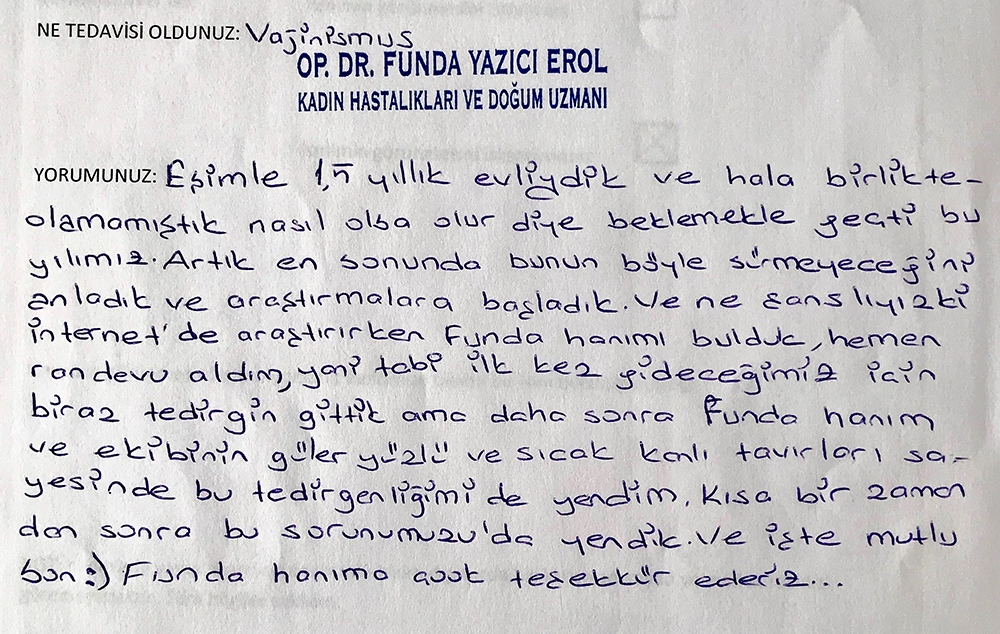 NE TEDAVİSİ OLDUNUZ: Vajinismus
OP. DR. FUNDA YAZICI EROL
KADIN HASTALIKLARI VE DOĞUM UZMANI
YORUMUNUZ: Eşimle 1,5 yıllık evliydik ve hala birlikte-
olamamıştık nasıl olsa olur diye beklemekle geçti bu
yılımız. Artık en sonunda bunun böyle sürmeyeceğini
anladık ve araştırmalara başladık. Ve ne şanslıyızki
internet'de araştırırken Funda hanımı bulduk, hemen
randevu aldım, yani tabi ilk kez gideceğimiz için
biraz tedirgin gittik ama daha sonra Funda hanım
ve ekibinin güler yüzlü ve sıcak kanlı tavırları sa-
yesinde bu tedirgenliğimi de yendim. Kısa bir zaman
dan sonra bu sorunumuzu'da yendik. Ve işte mutlu
son :) Funda hanıma çook teşekkür ederiz...